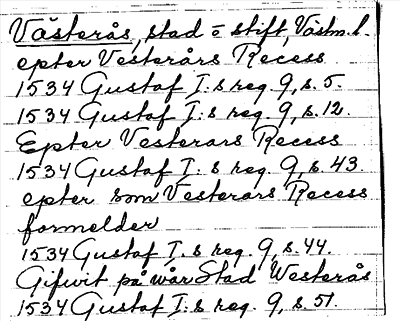 Västerås, stad o stift, Västm. l.
epter Vesterårs Recess
1534 Gustaf I:s reg. 9, s. 5.
1534 Gustaf I:s reg. 9, s. 12.
Epter Vesterars Recess
1534 Gustaf I:s reg. 9, s. 43
epter som Vesterars Recess
formelder
1534 Gustaf I:s reg. 9, s. 44.
Gifwit på wår Stad Westerås
1534 Gustaf I:s reg. 9, s. 51.